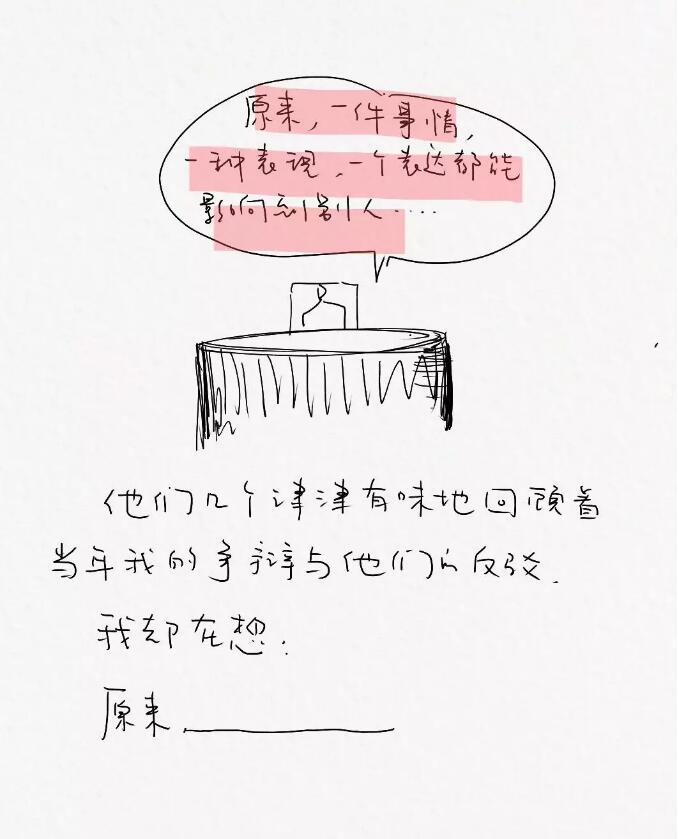 原来，一件事情，
一种表现，一个表达都能
影响到别人.....
他们几个津津有味地回顾着
当年我的争辩与他们的反驳.
我却在想:
原来__________